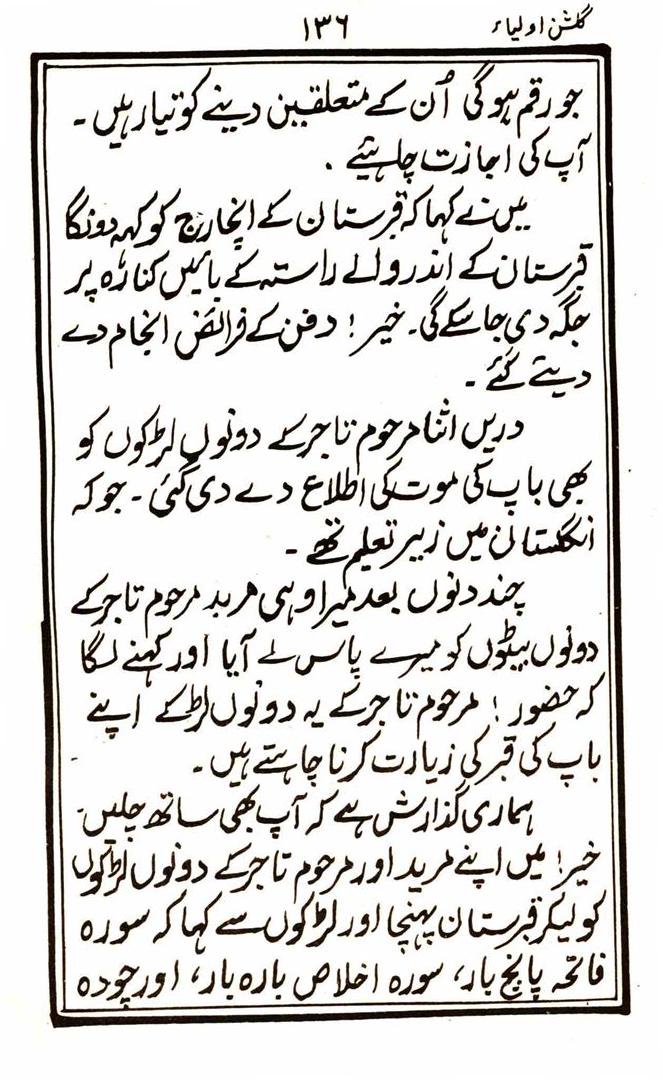 گلشن اولیاء ۱۳۶
جو رقم ہوگی اُن کے متعلقین دینے کو تیار ہیں۔
آپ کی اجازت چاہئیے ۔
میں نے کہا کہ قبرستان کے انچارج کو کہہ دونگا
قبرستان کے اندر والے راستہ کے بائیں کنارہ پر
جگہ دی جا سکے گی۔ خیر! دفن کے فرائض انجام دے
دیئے گئے ۔
دریں اثنا مرحوم تاجر کے دونوں لڑکوں کو
بھی باپ کی موت کی اطلاع دے دی گئی ۔ جو کہ
انگلستان میں زیر تعلیم تھے ۔
چند دنوں بعد میرا وہی مرید مرحوم تاجر کے
دونوں بیٹوں کو میرے پاس لے آیا اور کہنے لگا
کہ حضور! مرحوم تاجر کے یہ دونوں لڑکے اپنے
باپ کی قبر کی زیارت کرنا چاہتے ہیں ۔
ہماری گذارش ہے کہ آپ بھی ساتھ چلیں۔
خیر! میں اپنے مرید اور مرحوم تاجر کے دونوں لڑکوں
کو لیکر قبرستان پہنچا اور لڑکوں سے کہا کہ سورہ
فاتحہ پانچ بار، سورہ اخلاص بارہ بار، اور چودہ